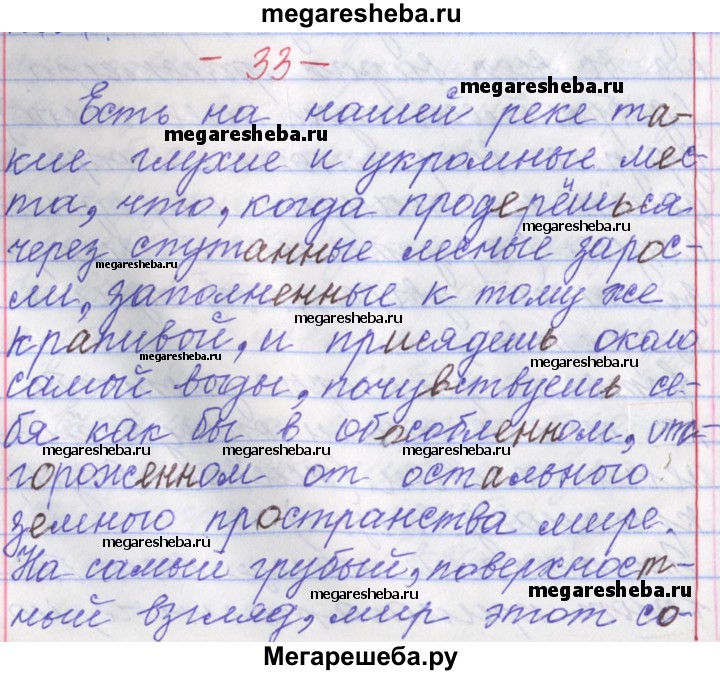 megaresheba.ru
- 33 -
Есть на нашей реке та-
megaresheba.ru
megaresheba.ru
кие глухие и укромные мес-
та, что, когда продерёшься
megaresheba.ru
через спутанные лесные зарос-
megaresheba.ru
ли, заполненные к тому же
megaresheba.ru
крапивой, и присядешь около
megaresheba.ru
megaresheba.ru
самый воды, почувствуешь се-
бя как бы в обособленном, от-
megaresheba.ru
megaresheba.ru
megaresheba.ru
гороженном от остального
земного пространства мире.
megaresheba.ru
На самый грубый, поверхност-
megaresheba.ru
megaresheba.ru
ный взгляд, мир этот со-
Мегарешеба.ру